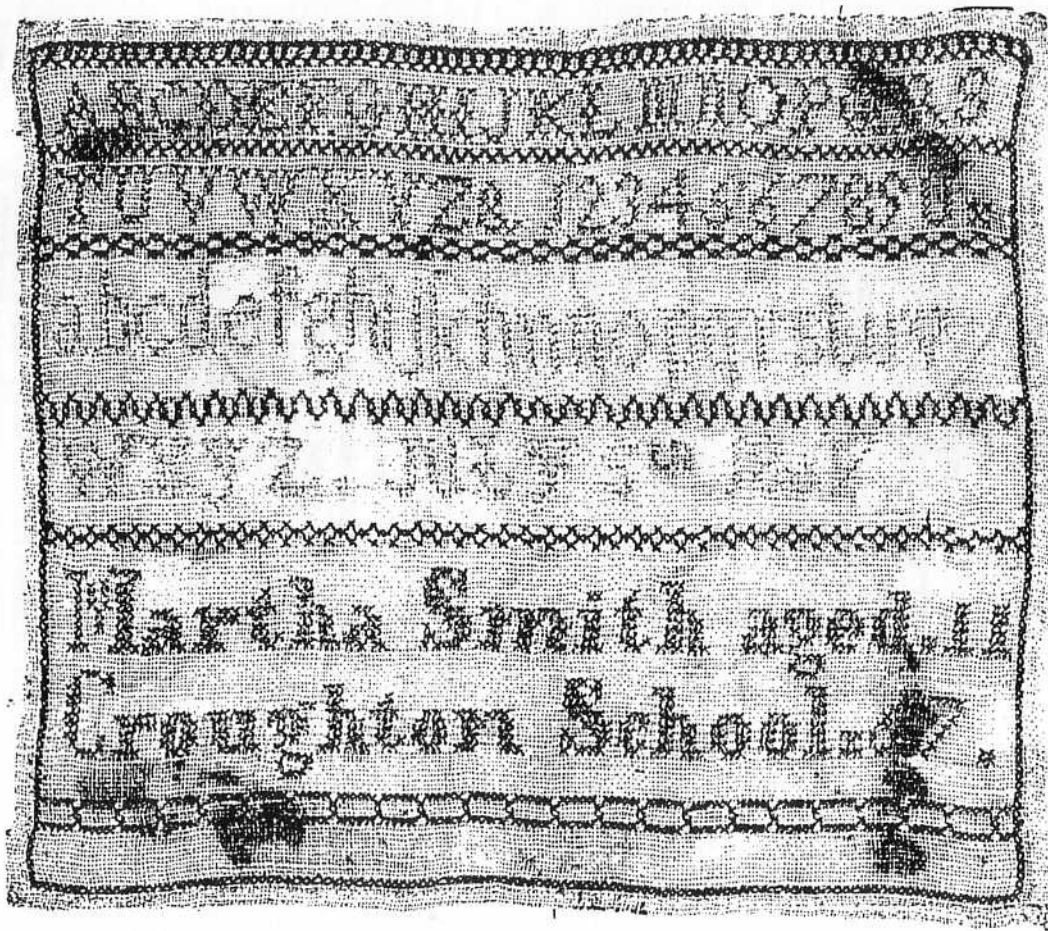 ABCDEFGHIJKLMNOPQRS
TUVWXYZ& 1234567891
abcdefghijklmnopqrstuv
wxyz
Martha Smith aged 11
Croughton School